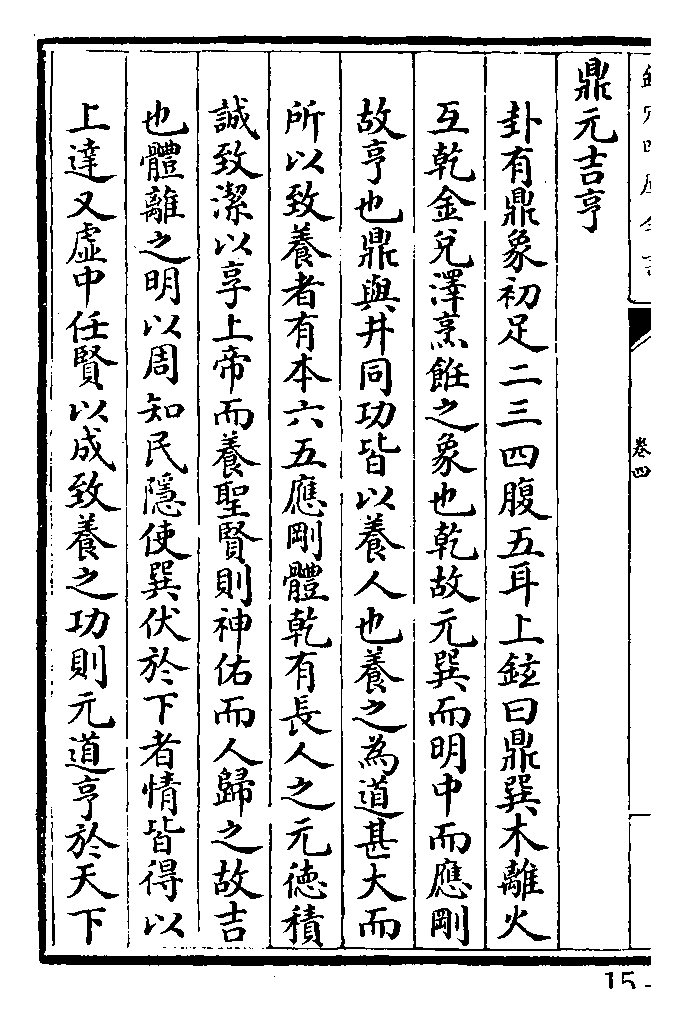 鼎元吉亨
卦有鼎象初足二三四腹五耳上鉉曰鼎巽木離火
互乾金兌澤烹餁之象也乾故元巽而明中而應剛
故亨也鼎與井同功皆以養人也養之為道甚大而
所以致養者有本六五應剛體乾有長人之元德積
誠致潔以享上帝而養聖賢則神佑而人歸之故吉
也體離之明以周知民隱使巽伏於下者情皆得以
上達又虛中任賢以成致養之功則元道亨於天下
卷四
15